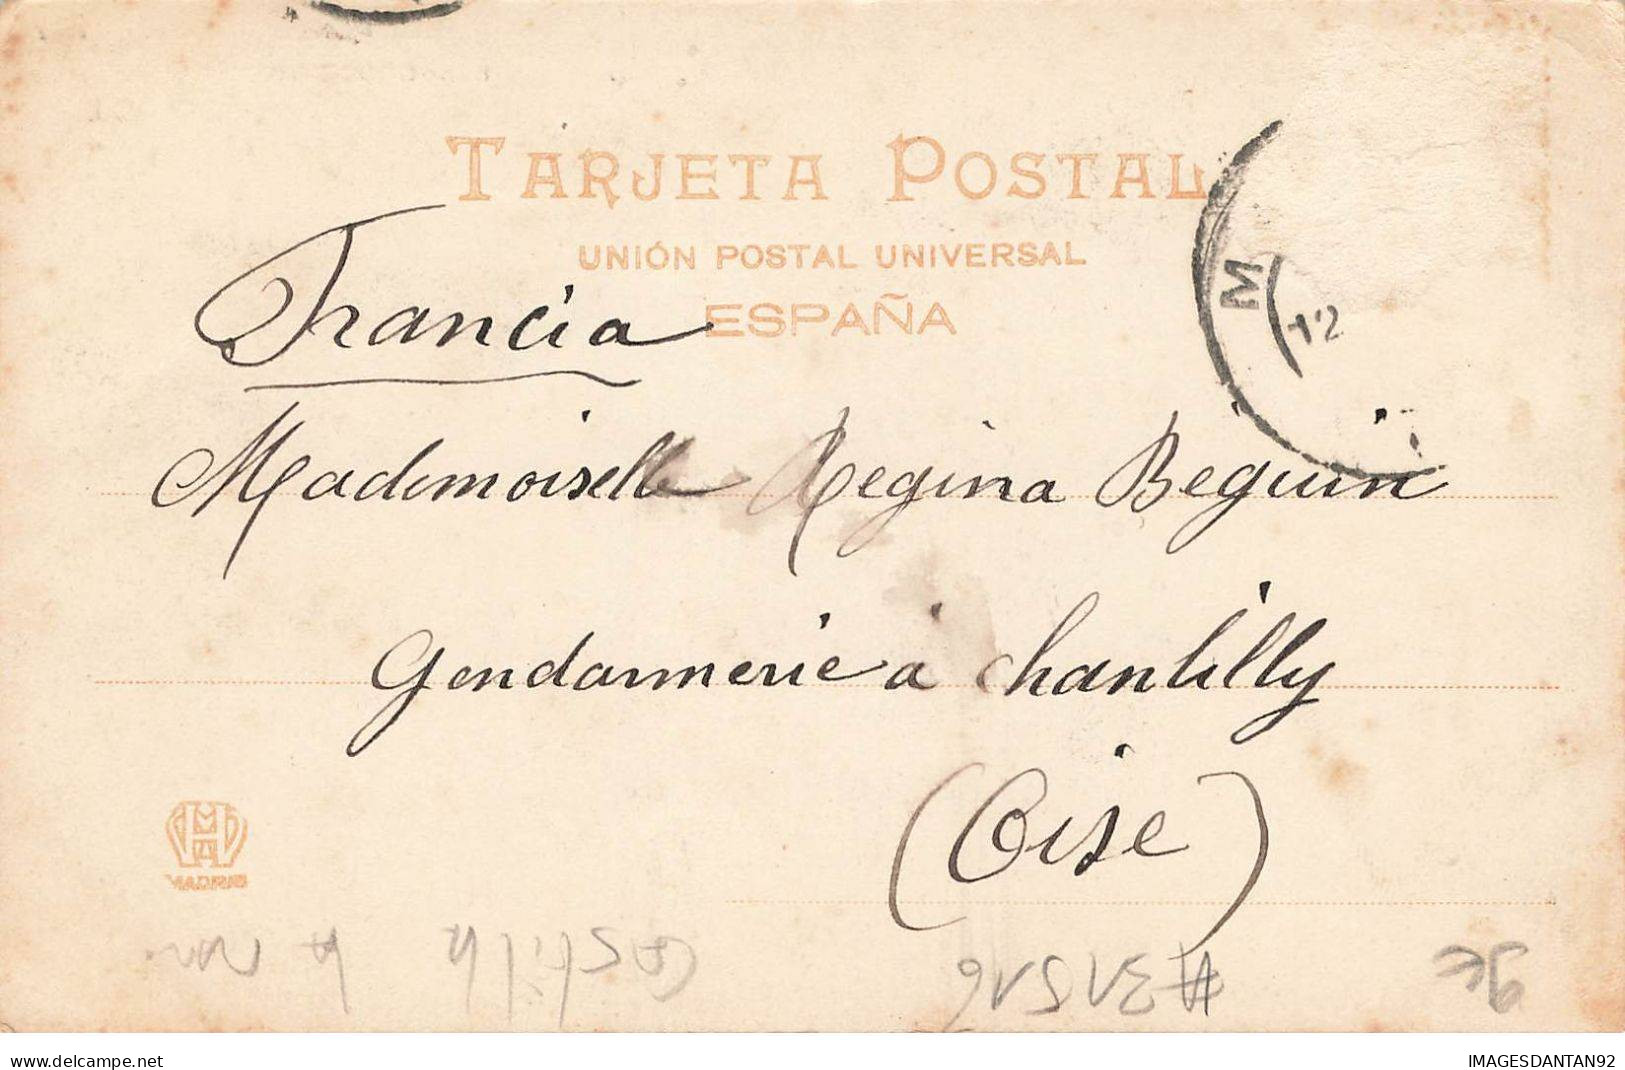 TARJETA POSTAL
UNIÓN POSTAL UNIVERSAL
ESPAÑA
M
12
Francia
Mademoiselle Regina Beguin
Gendarmerie à Chantilly
(Oise)
MADRID
Castilla
#31516
9€
www.delcampe.net
IMAGESDANTAN92